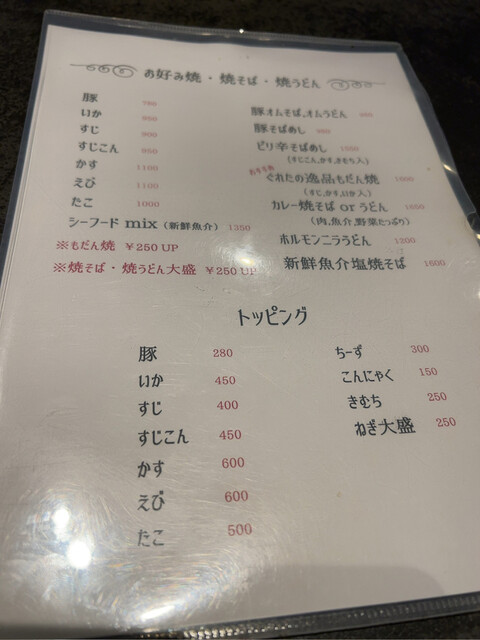 お好み焼・焼そば・焼うどん
豚 780
いか 950
すじ 900
すじこん 950
かす 1100
えび 1100
たこ 1000
シーフード mix（新鮮魚介） 1350
※もだん焼 ￥250 UP
※焼そば・焼うどん大盛 ￥250 UP
豚オムそば、オムうどん
豚そばめし
ピリ辛そばめし
(すじこん,かす,きもち入)
おすすめ
ぐれたの逸品もだん焼
(すじ,かす,いか入)
カレー焼そば or うどん
(肉,魚介,野菜たっぷり)
ホルモンニラうどん 1200
新鮮魚介塩焼そば 1600
トッピング
豚 280
いか 450
すじ 400
すじこん 450
かす 600
えび 600
たこ 500
ちーず 300
こんにゃく 150
きむち 250
ねぎ大盛 250